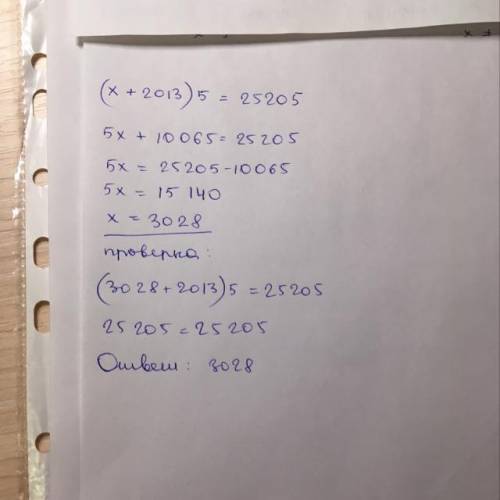 (x + 2013)5 = 25205
5x + 10065 = 25205
5x = 25205-10065
5x = 15 140
x = 3028
проверка:
(3028+2013)5 = 25205
25 205 = 25 205
Ответ: 3028